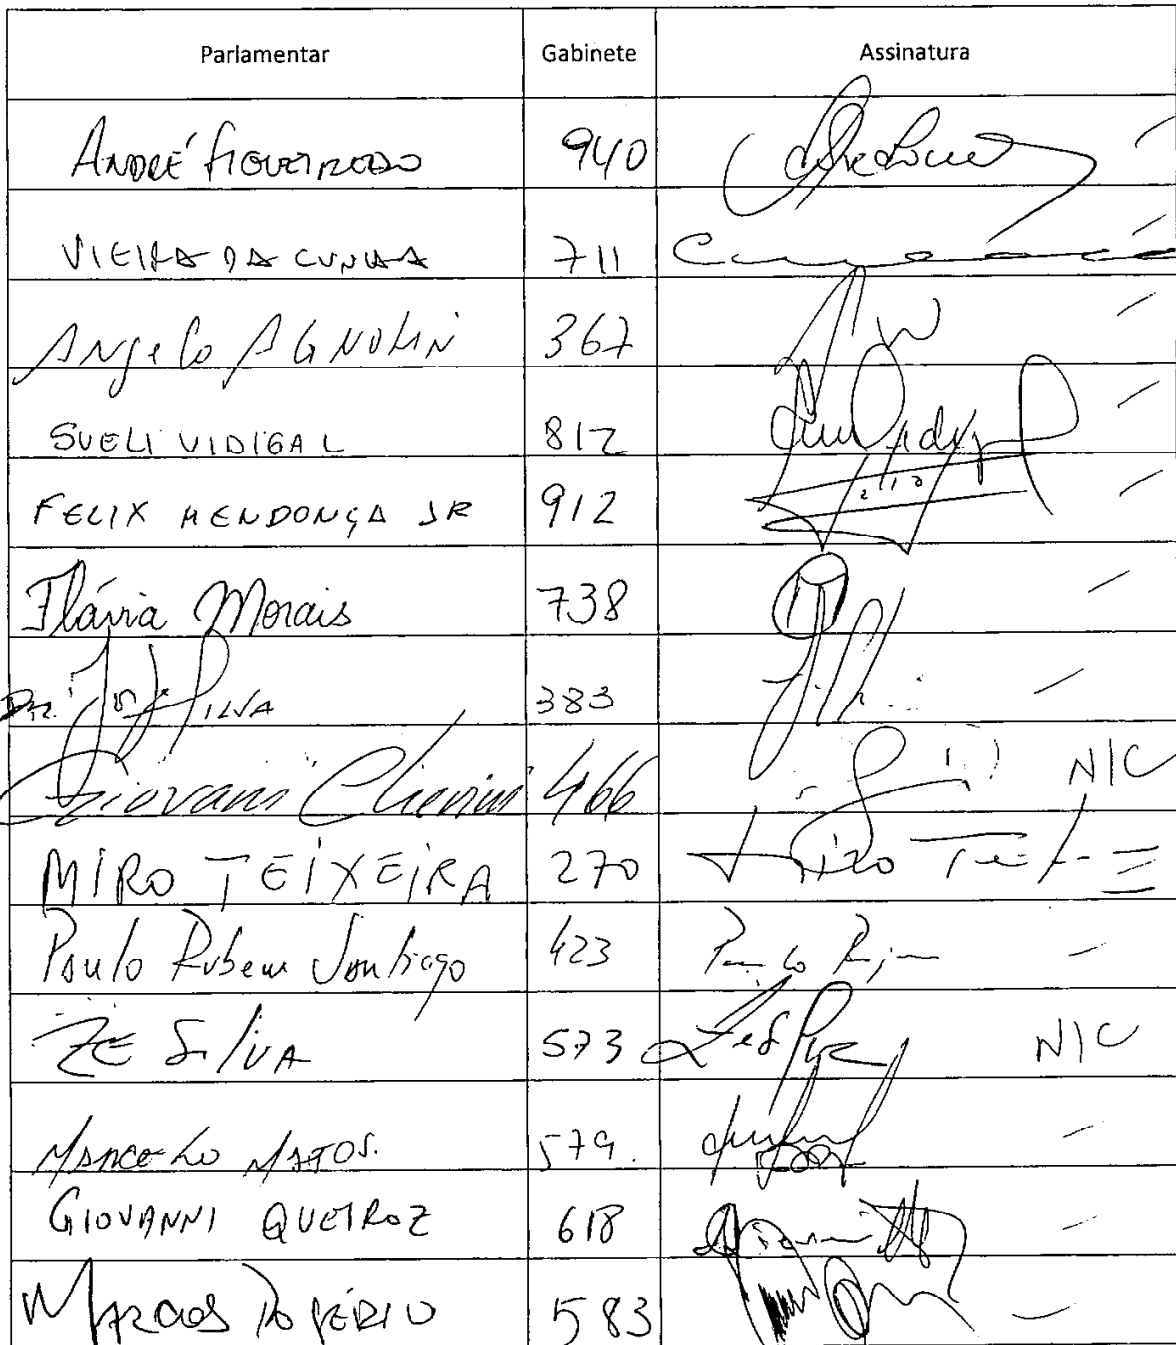 Parlamentar Gabinete Assinatura
ANDRÉ FIGUEIREDO 940
VIEIRA DA CUNHA 711
Angelo AGNOLIN 367
SUELI VIDIGAL 812
FELIX MENDONÇA JR 912
Flávia Morais 738
DR. JORGE SILVA 383
Giovani Cherini 466 N/C
MIRO TEIXEIRA 270 Miro Teixeira
Paulo Rubem Santiago 423
ZÉ SILVA 573 N/C
MARCELO MATOS. 579.
GIOVANNI QUEIROZ 618
MARCOS ROGÉRIO 583